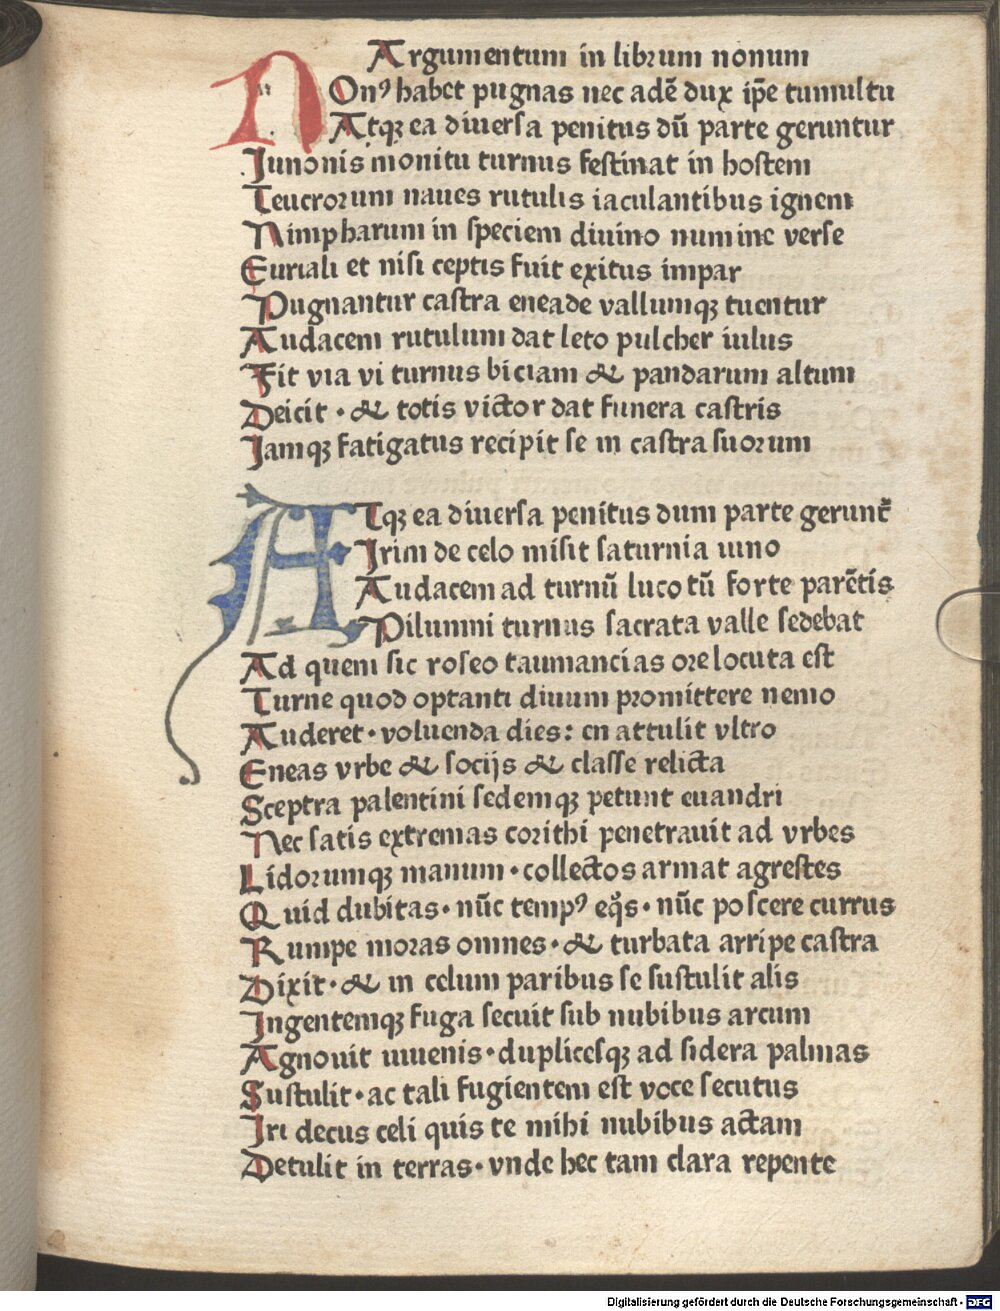 Argumentum in librum nonum
NOnꝰ habet pugnas nec adē dux ip̄e tumultu
Atqꝫ ea diuersa penitus dū parte geruntur
Junonis monitu turnus festinat in hostem
Teucrorum naues rutulis iaculantibus ignem
Nimpharum in speciem diuino numine verse
Euriali et nisi ceptis fuit exitus impar
Pugnantur castra eneade vallumqꝫ tuentur
Audacem rutulum dat leto pulcher iulus
Fit via vi turnus biciam & pandarum altum
Deicit · & totis victor dat funera castris
Jamqꝫ fatigatus recipit se in castra suorum
ATqꝫ ea diuersa penitus dum parte gerunt᷑
Jrim de celo misit saturnia iuno
Audacem ad turnū luco tū forte parētis
Pilumni turnus sacrata valle sedebat
Ad quem sic roseo taumancias ore locuta est
Turne quod optanti diuum promittere nemo
Auderet · voluenda dies: en attulit vltro
Eneas vrbe & socijs & classe relicta
Sceptra palentini sedemqꝫ petunt euandri
Nec satis extremas corithi penetrauit ad vrbes
Lidorumqꝫ manum · collectos armat agrestes
Quid dubitas · nūc tempꝰ eq̊s · nūc poscere currus
Rumpe moras omnes · & turbata arripe castra
Dixit · & in celum paribus se sustulit alis
Jngentemqꝫ fuga secuit sub nubibus arcum
Agnouit iuuenis · duplicesqꝫ ad sidera palmas
Sustulit · ac tali fugientem est voce secutus
Jri decus celi quis te mihi nubibus actam
Detulit in terras · vnde hec tam clara repente
Digitalisierung gefördert durch die Deutsche Forschungsgemeinschaft - DFG